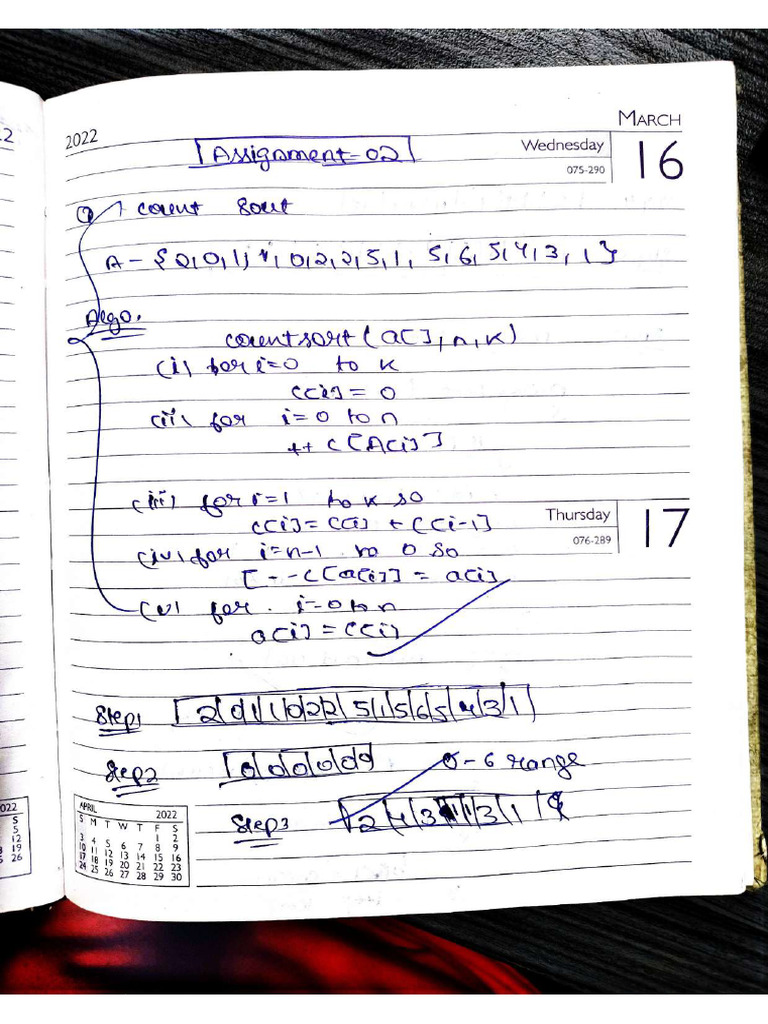 2022
MARCH
Assignment-02
Wednesday
16
075-290
Count Sort
A - {2,0,1,1,0,2,2,5,1,5,6,5,4,3,1}
Algo.
countsort(a[],n,k)
(i) for i=0 to k
c[i] = 0
(ii) for i=0 to n
++ C[A[i]]
(iii) for i=1 to k so
c[i] = c[i] + c[i-1]
Thursday
17
076-289
(iv) for i=n-1 to 0 so
[--c[a[i]] = a[i]
(v) for i=0 to n
a[i] = c[i]
Step1 |2|0|1|1|0|2|2|5|1|5|6|5|4|3|1|
Step2 |0|0|0|0|0|0 0-6 range
Step3 |2|4|3|1|1|3|1|
APRIL 2022
S M T W T F S
1 2
3 4 5 6 7 8 9
10 11 12 13 14 15 16
17 18 19 20 21 22 23
24 25 26 27 28 29 30
022
S
5
12
19
26